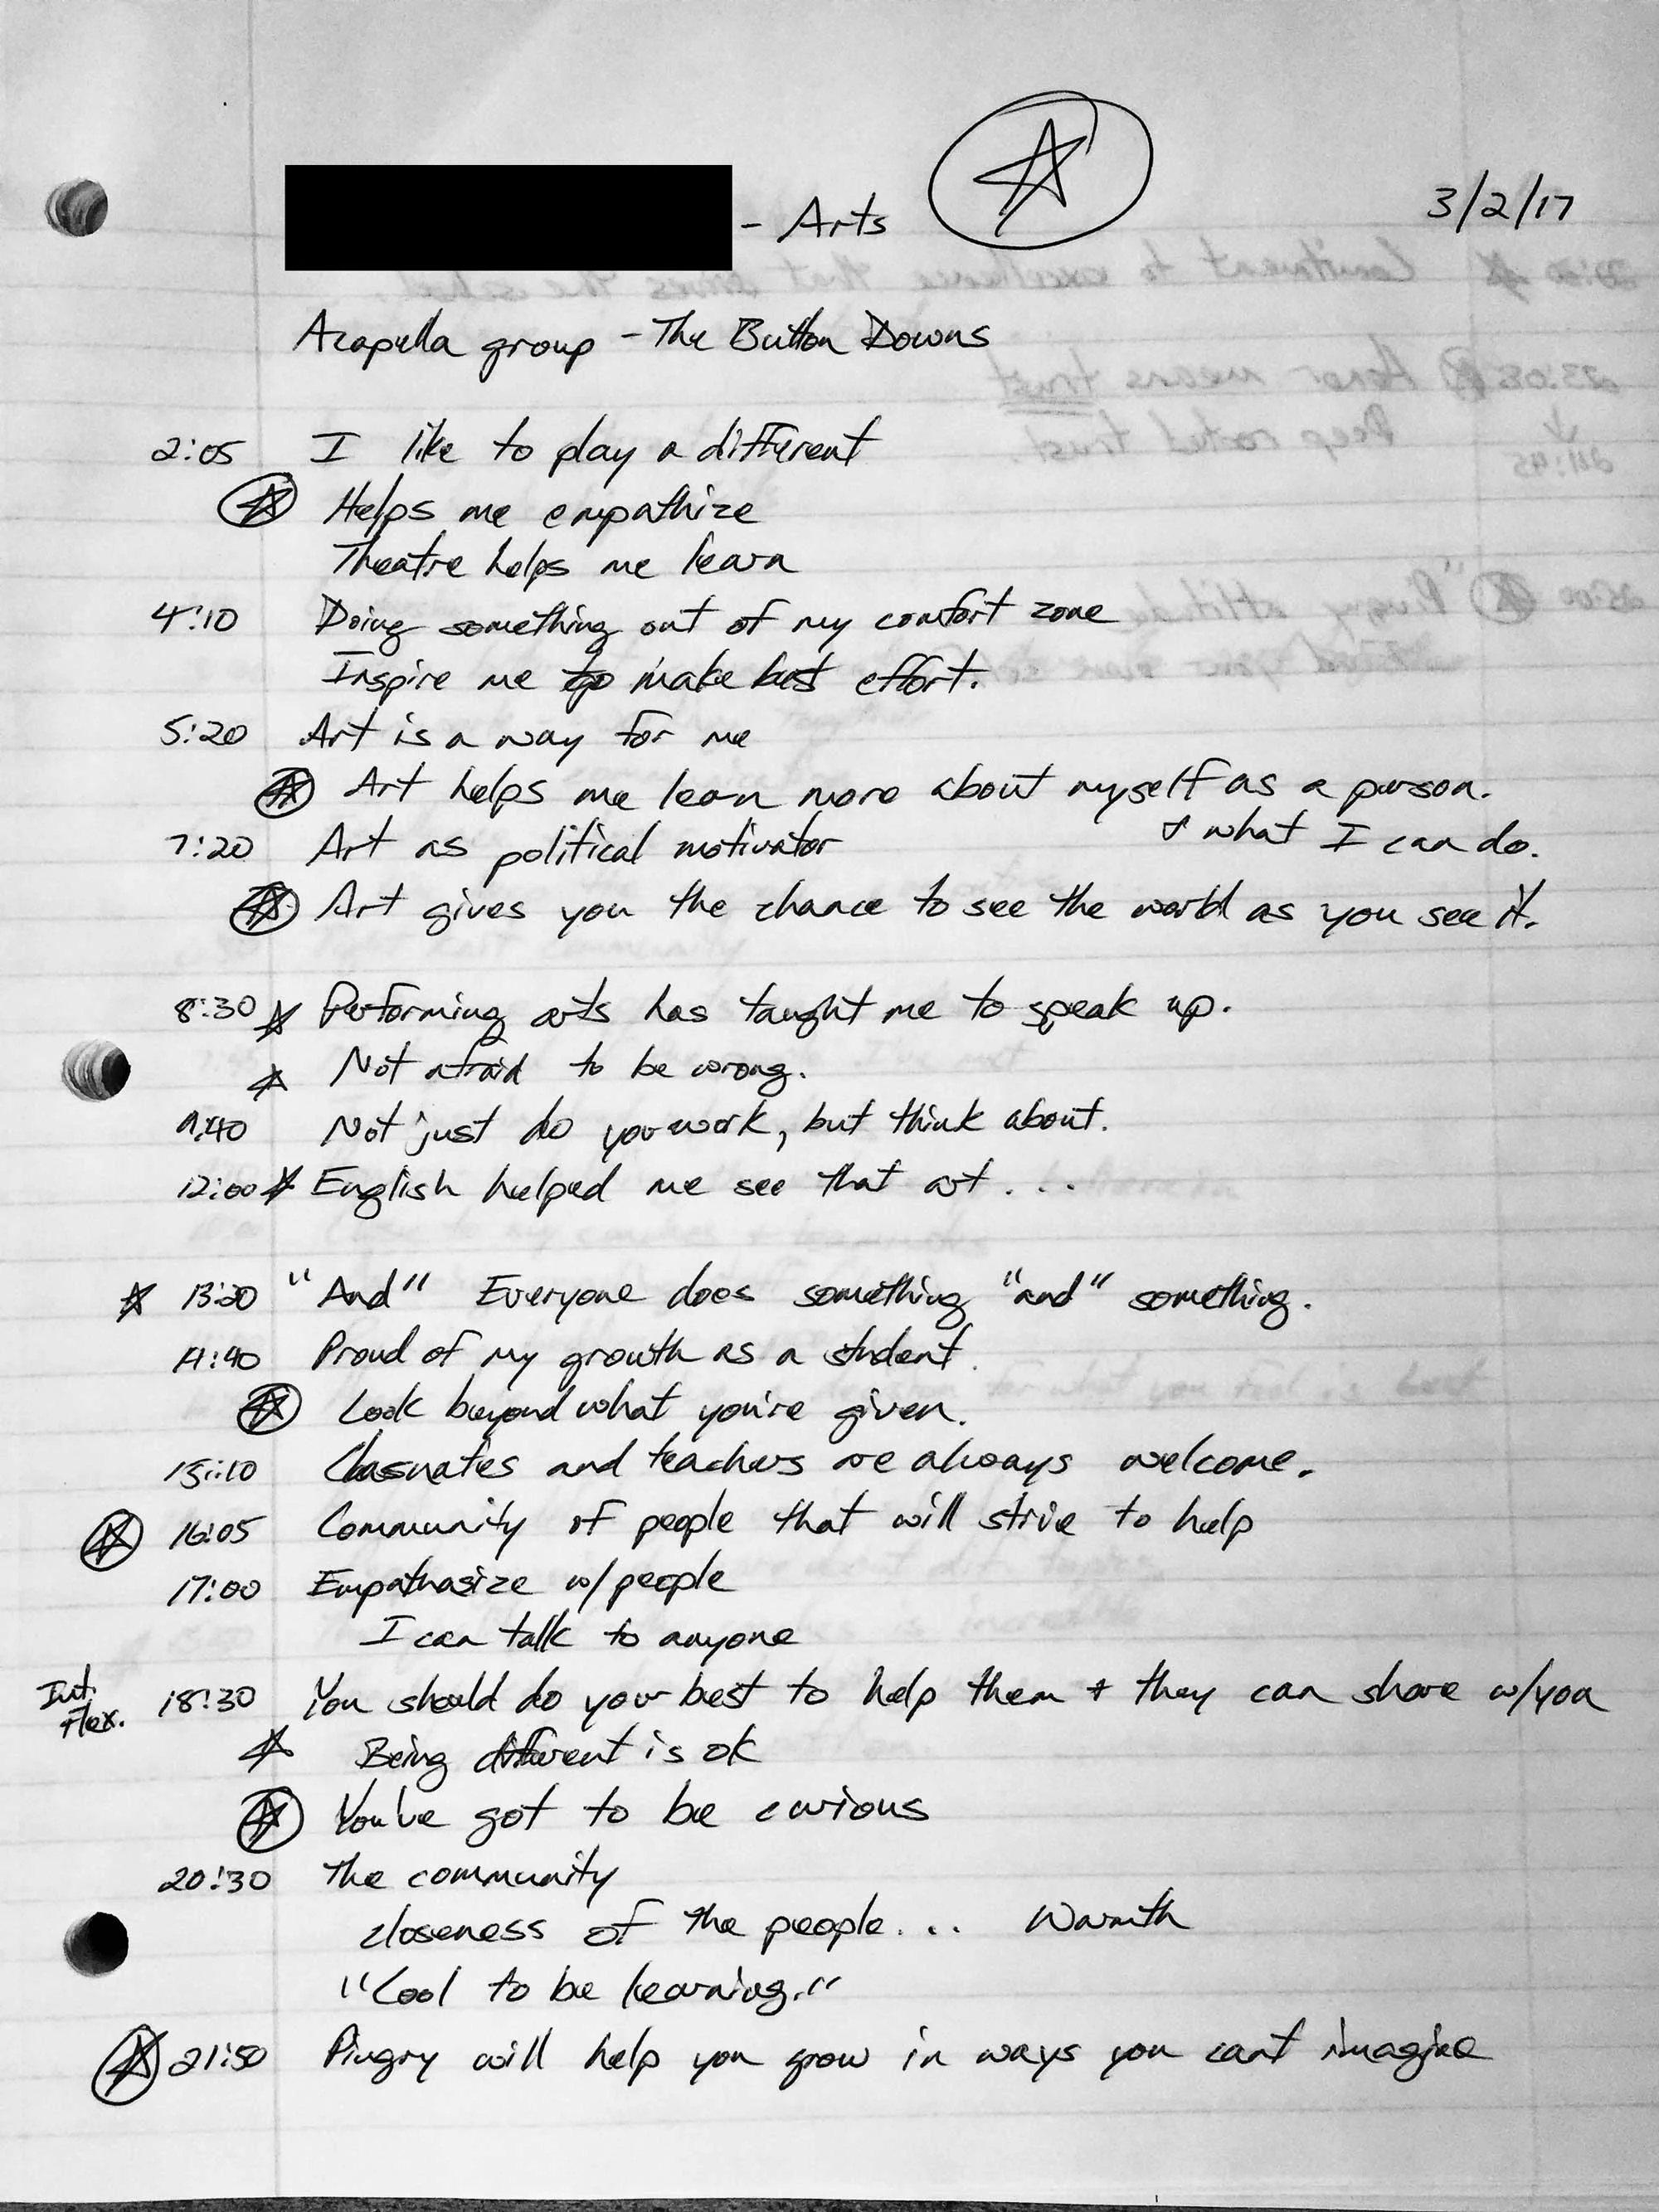 - Arts ☆ 3/2/17
Acapella group - The Button Downs
2:05 I like to play a different
☆ Helps me empathize
Theatre helps me learn
4:10 Doing something out of my comfort zone
Inspire me to make best effort.
5:20 Art is a way for me
☆ Art helps me learn more about myself as a person.
& what I can do.
7:20 Art as political motivator
☆ Art gives you the chance to see the world as you see it.
8:30 ☆ Performing arts has taught me to speak up.
☆ Not afraid to be wrong.
9:40 Not just do your work, but think about.
12:00 ☆ English helped me see that art...
☆ 13:20 "And" Everyone does something "and" something.
14:40 Proud of my growth as a student.
☆ Look beyond what you're given.
15:10 Classmates and teachers are always welcome.
☆ 16:05 Community of people that will strive to help
17:00 Empathasize w/people
I can talk to anyone
Int. Flex. 18:30 You should do your best to help them & they can share w/you
☆ Being different is ok
☆ You've got to be curious
20:30 The community
closeness of the people... Warmth
"Cool to be learning."
☆ 21:50 Pingry will help you grow in ways you cant imagine